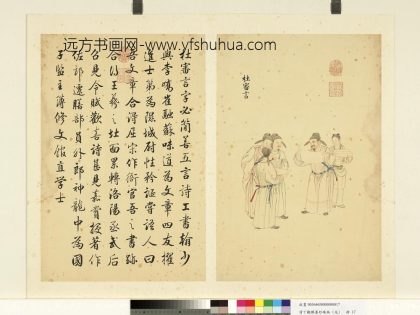 远方书画网-www.yfshuhua.com
杜審言
杜審言字必簡善五言詩工書翰少
與李嶠崔融蘇味道為文章四友擢
進士第為隰城尉性矜誕嘗語人曰
吾文章合得屈宋作衙官吾之書跡
合得王羲之北面累轉洛陽丞武后
召見令賦歡喜詩甚見嘉賞授著作
佐郎遷膳部員外郎神龍中為國
子監主簿修文館直學士